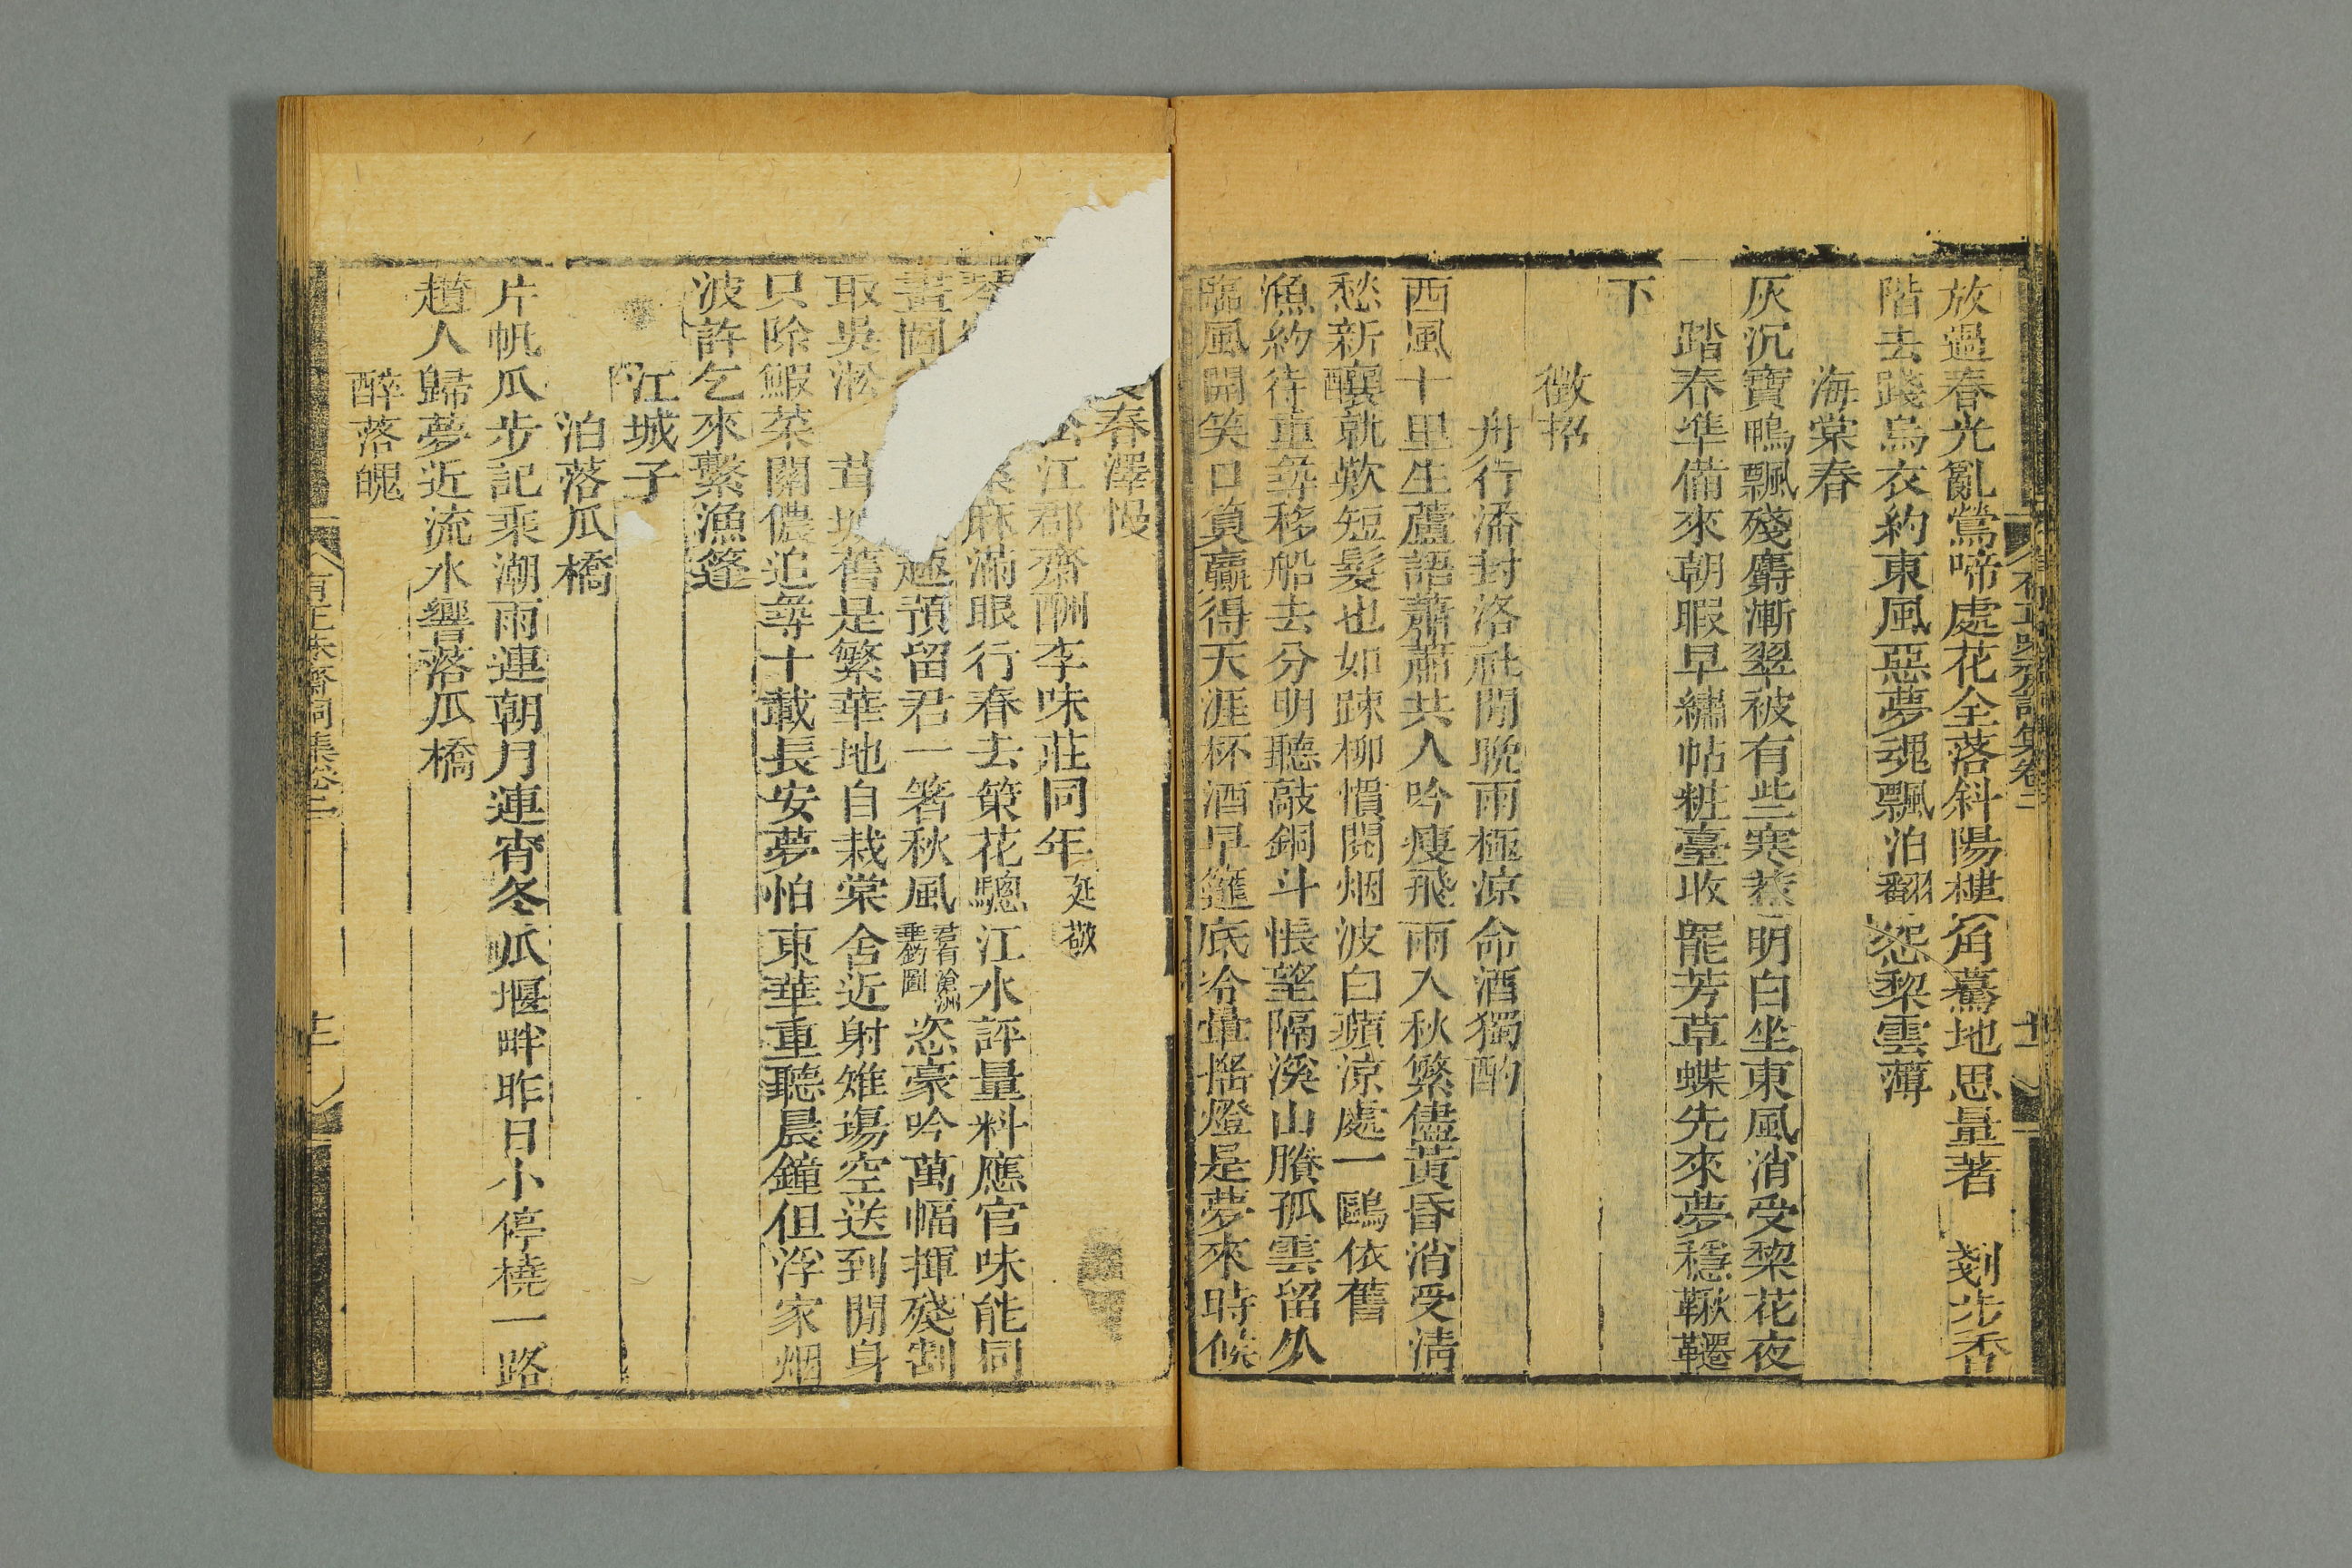 放過春光亂鶯啼處花全落斜陽樓角驀地思量著　剗步香
階去踐烏衣約東風惡夢魂飄泊翻怨棃雲薄
海棠春
灰沉寶鴨飄殘麝漸翠被有些寒䓤明白坐東風消受棃花夜
踏春準備來朝暇早繡帖粧臺收罷芳草蝶先來夢穩鞦韆
下
徵招
舟行泲封洛社閒晚雨極涼命酒獨酌
西風十里生蘆語蕭蕭共人吟瘦飛雨入秋繁儘黃昏消受淸
愁新釀就歎短髮也如踈柳慣閱烟波白蘋涼處一鷗依舊
漁約待重尋移船去分明聽敲銅斗悵望隔溪山賸孤雲留久
臨風開笑口負贏得天涯杯酒早篷底冷暈搖燈是夢來時候
春澤慢
江郡齋酬李味莊同年廷敬
麻滿眼行春去策花驄江水評量料應官味能同
畫圖趣預留君一箸秋風君有滄洲垂釣圖恣豪吟萬幅揮殘割
取吳淞　舊是繁華地自栽棠舍近射雉塲空送到閒身
只除鰕菜關儂追尋十載長安夢怕東華重聽晨鐘但浮家烟
波許乞來繫漁篷
江城子
泊落瓜橋
片帆瓜步記乘潮雨連朝月連宵冬瓜堰畔昨日小停橈一路
趲人歸夢近流水響落瓜橋
醉落魄
有正味齋詞集卷二